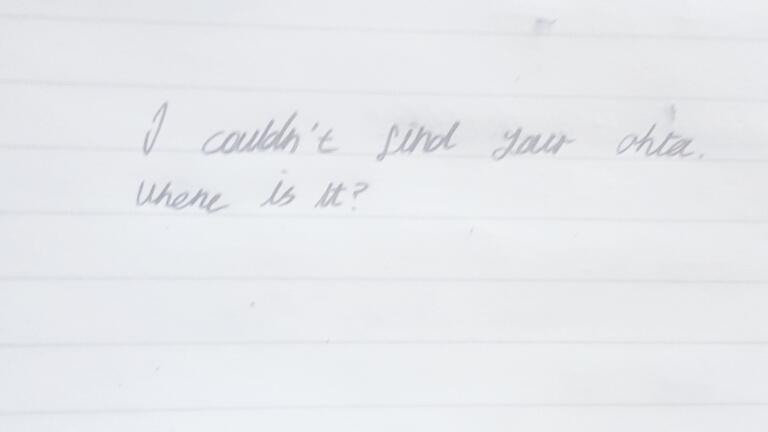 I couldn't find your ohta.
Where is it?